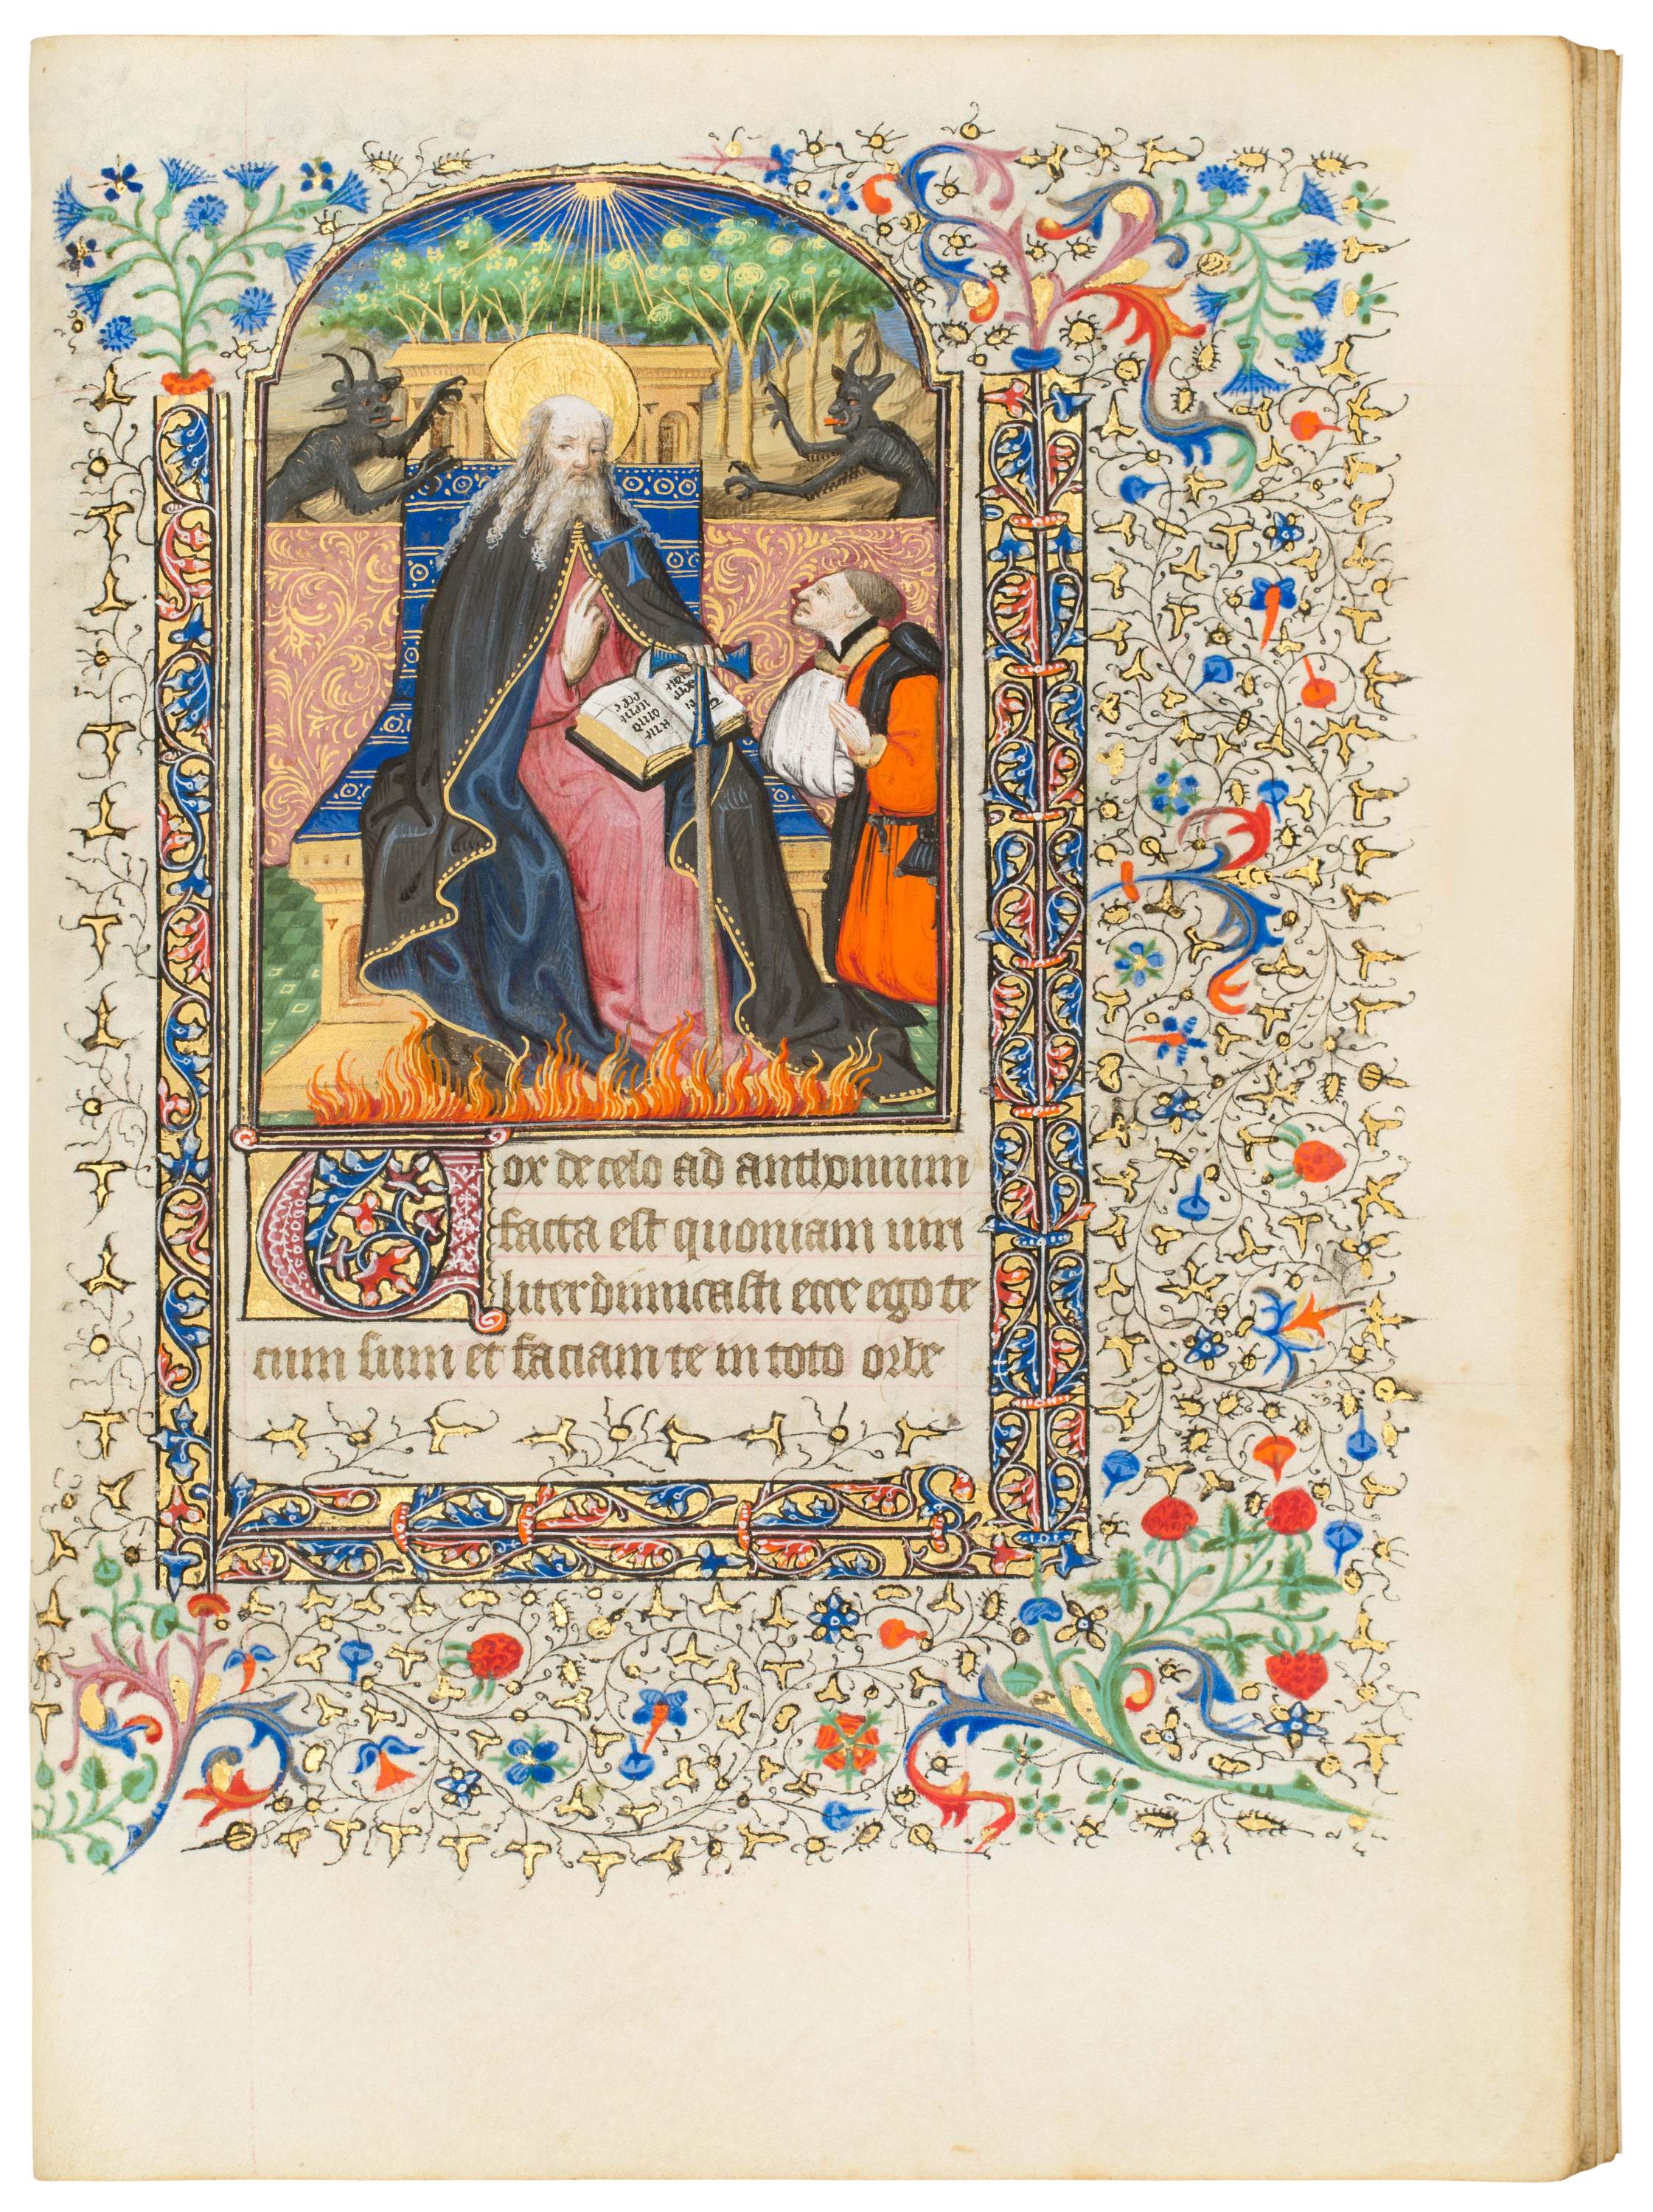 Vox de celo ad anthonium
facta est quoniam uiri
liter dimicasti ecce ego te
cum sum et faciam te in toto orbe